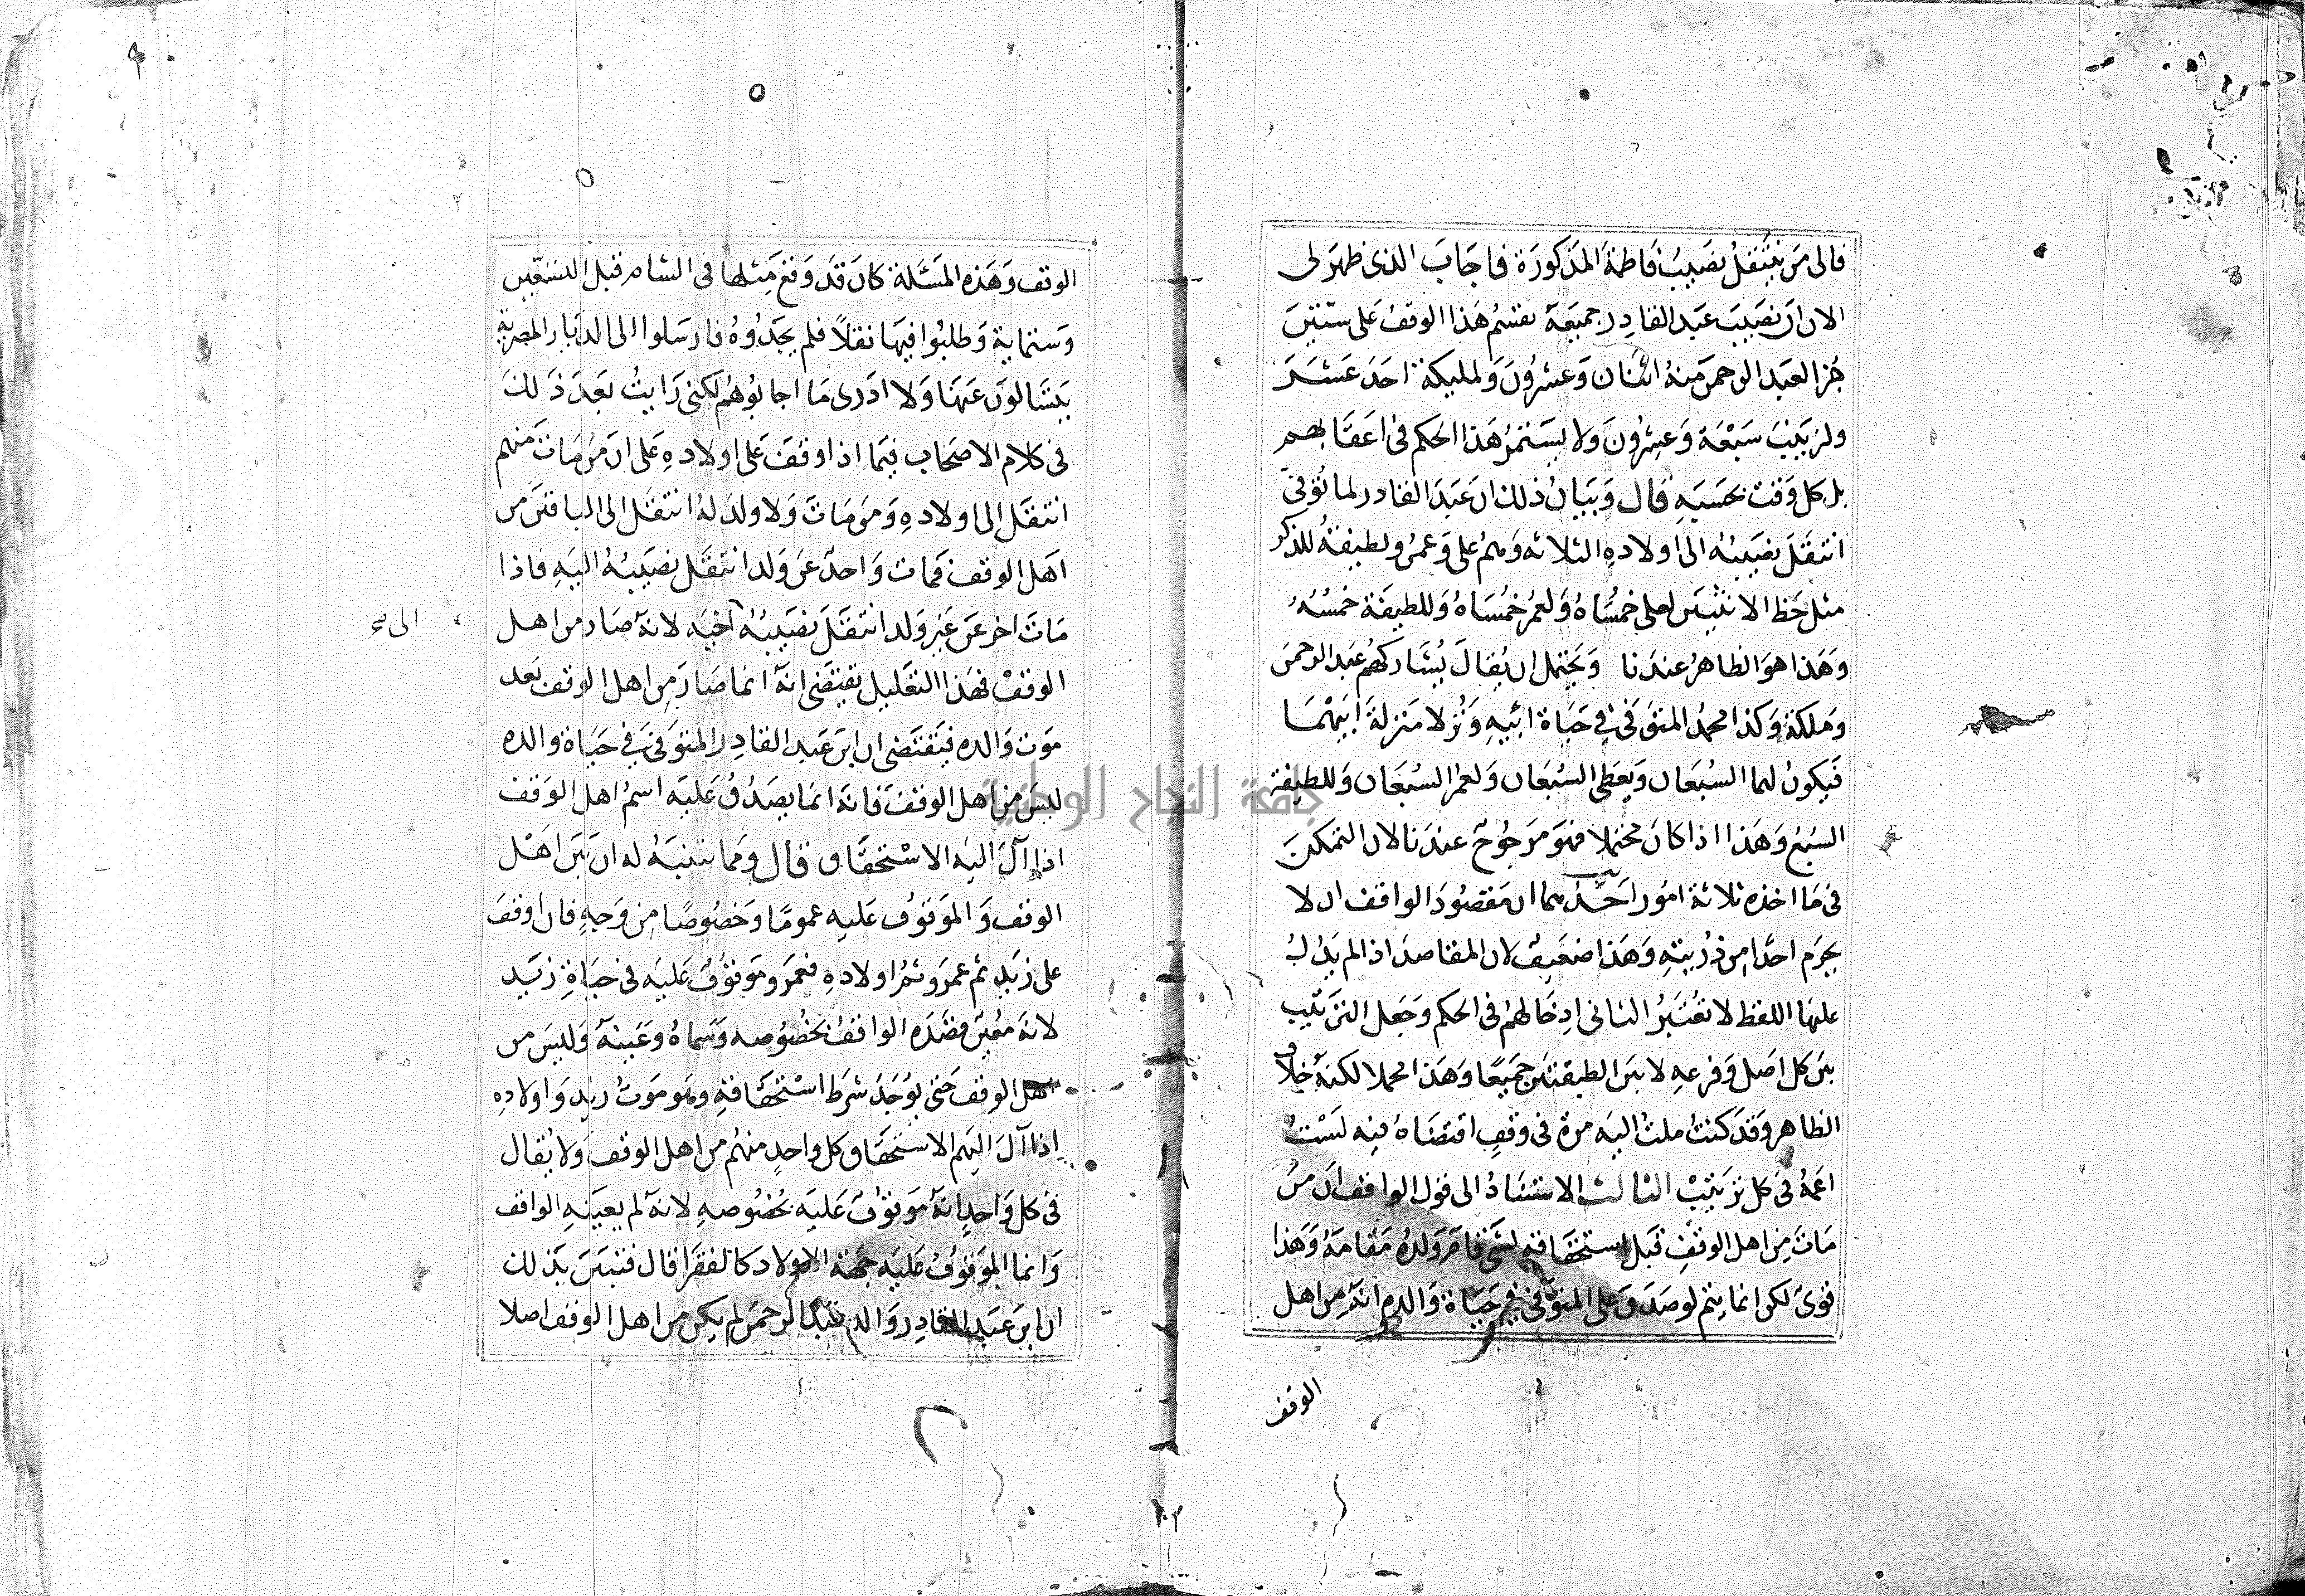 فالى من ينتقل نصيب فاطمة المذكورة فاجاب الذى ظهر لى
الان ان نصيب عبد القادر جميعه يقسم هذا الوقف على ستين
جزا لعبد الرحمن منه اثنان وعشرون ولمليكة احد عشر
ولزينب سبعة وعشرون ولا يستمر هذا الحكم فى اعقابهم
بل كل وقت بحسبه قال وبيان ذلك ان عبد القادر لما توفى
انتقل نصيبه الى اولاده الثلاثه وهم على وعمر ولطيفة للذكر
مثل حظ الانثيين لعلى خمساه ولعمر خمساه وللطيفة خمسه
وهذا هو الظاهر عندنا ويحتمل ان يقال يشاركهم عبد الرحمن
وملكة وكذا محمد المتوفى فى حياة ابيه ونزلا منزلة ابيهما
فيكون لهما السبعان ويعطى السبعان ولعمر السبعان وللطيفة
السبع وهذا اذا كان محتملا فهو مرجوح عندنا لان التمكن
فى ما اخذه ثلاثة امور احدهما ان مقصود الواقف ان لا
يحرم احدا من ذريته وهذا ضعيف لان المقاصد اذا لم يدل
عليها اللفظ لا تعتبر الثانى ادخالهم فى الحكم وجعل الترتيب
بين كل اصل وفرعه لا بين الطبقتين جميعا وهذا محملا لكنه خلاف
الظاهر وقد كنت ملت اليه مرة فى وقف اقتضاه فيه لست
اعمه فى كل ترتيب الثالث الاستناد الى قول الواقف ان من
مات من اهل الوقف قبل استحقاقه لشى قام ولده مقامه وهذا
قوى لكن انما يتم لو صدق على المتوفى فى حياة والده انه من اهل
الوقف
الوقف وهذه المسئلة كان قد وقع مثلها فى الشام قبل التسعين
وستماية وطلبوا فيها نقلا فلم يجدوه فارسلوا الى الديار المصرية
يسالون عنها ولا ادرى ما اجابوهم لكنى رايت بعد ذلك
فى كلام الاصحاب فيما اذا وقف على اولاده على ان من مات منهم
انتقل الى اولاده ومن مات ولا ولد له انتقل الى الباقين من
اهل الوقف فمات واحد عن ولد انتقل نصيبه اليه فاذا
مات اخر عن غير ولد انتقل نصيبه اخيه لانه صار من اهل
الى صح
الوقف فهذا التعليل يقتضى انه انما صار من اهل الوقف بعد
موت والده فيقتضى ان ابن عبد القادر المتوفى فى حياة والده
ليس من اهل الوقف فانه انما يصدق عليه اسم اهل الوقف
اذا آل اليه الاستحقاق قال ومما نتنبه له ان بين اهل
الوقف والموقوف عليه عموما وخصوصا من وجه فان اوقف
على زيد ثم عمر وثم اولاده فعمر وموقوف عليه فى حياة زيد
لانه معين قصده الواقف بخصوصه وسماه وعينه وليس من
اهل الوقف حتى يوجد شرط استحقاقه وهو موت زيد واولاده
اذا آل اليهم الاستحقاق كل واحد منهم من اهل الوقف ولا يقال
فى كل واحد انه موقوف عليه بخصوصه لانه لم يعينه الواقف
وانما الموقوف عليه جهة الاولاد كالفقرا قال فتبين بذلك
ان ابن عبد القادر والد عبد الرحمن لم يكن من اهل الوقف اصلا
جامعة النجاح الوطنية